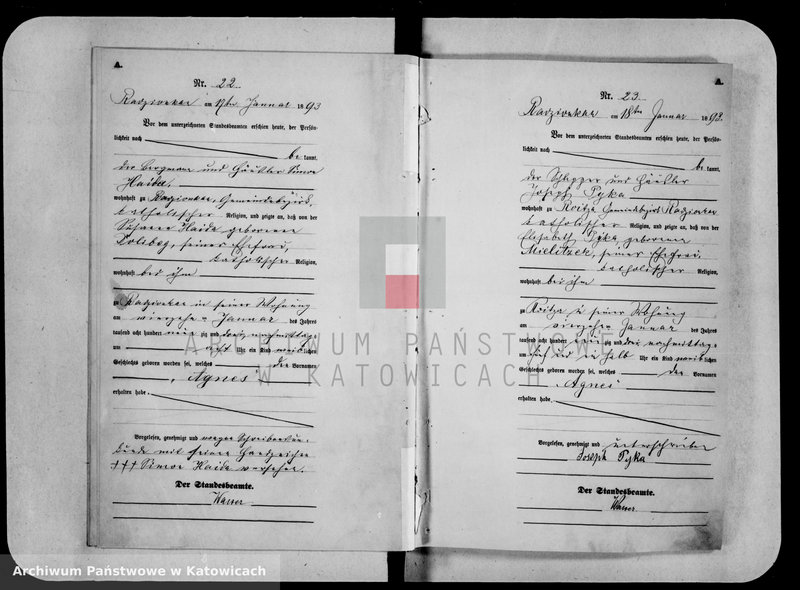 A.
Nr. 22
Radzionkau am 17ten Januar 1893
Vor dem unterzeichneten Standesbeamten erschien heute, der Persön-
lichkeit nach
be kannt,
der Bergmann und Häusler Simon
Haida,
wohnhaft zu Radzionkau, Gemeindebezirk,
katholischer Religion, und zeigte an, daß von der
Haida geborenen
seiner Ehefrau,
katholischer Religion,
wohnhaft bei ihm
zu Radzionkau in seiner Wohnung
am vierzehn Januar des Jahres
tausend acht hundert neun zig und drei nachmittags
um acht Uhr ein Kind weib lichen
Geschlechts geboren worden sei, welches den Vornamen
„Agnes“
erhalten habe.
Vorgelesen, genehmigt und wegen Schreibensun-
kunde mit seinem Handzeichen
+++ Simon Haida versehen.
Der Standesbeamte.
A.
Nr. 23
Radzionkau am 18ten Januar 1893.
Vor dem unterzeichneten Standesbeamten erschien heute, der Persön-
lichkeit nach
be kannt,
der Schlepper und Häusler
Joseph Pyka
wohnhaft zu Roitza Gemeindebezirk Radzionkau
katholischer Religion, und zeigte an, daß von der
Elisabeth Pyka geborenen
seiner Ehefrau,
katholischer Religion,
wohnhaft bei ihm
zu Roitza in seiner Wohnung
am vierzehn Januar des Jahres
tausend acht hundert neun zig und drei nachmittags
um und ein halb Uhr ein Kind weib lichen
Geschlechts geboren worden sei, welches den Vornamen
„Agnes“
erhalten habe.
Vorgelesen, genehmigt und unterschrieben
Joseph Pyka
Der Standesbeamte.
ARCHIWUM PAŃSTWOWE
W KATOWICACH
Archiwum Państwowe w Katowicach